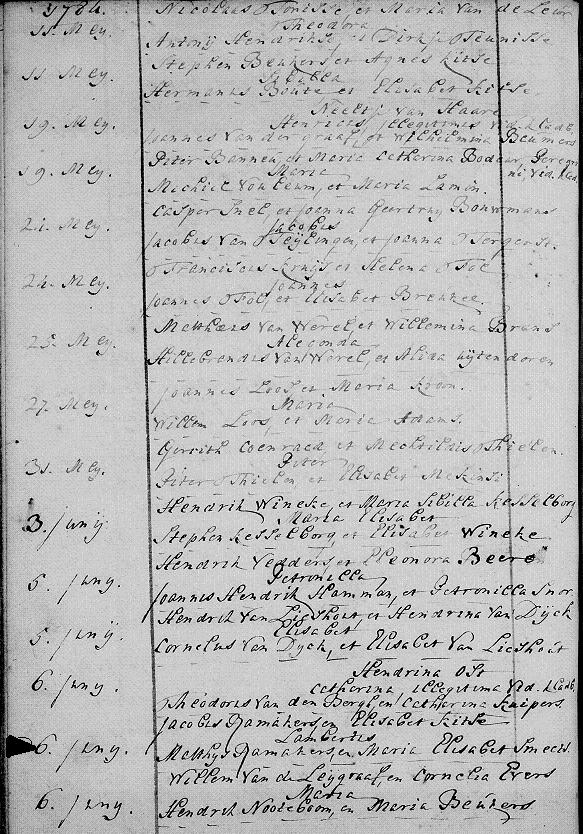 1784. Nicolaas Tonisse, et Maria Van de Leur
11. Mey. Theodora
Antonÿ Hendrikse, et Dirkje Teunisse
Stephen Beukers et Agnes Kitse
11. Mey. Sibilla
Hermanus Boute et Elisabet Kitse.
Neeltje van Haare
19. Mey. Henricus, illegitimus vid. Kladb.
Joannes Van der Graaf, et Wilhelmina Beumers
Piter Bannen, et Maria Catharina Bodaar, Peregri
19. Mey. Maria ni, vid. Klad.
Michiel Von Eum, et Maria Lamin.
Casper Snel, et Joanna Geertruy Bouwmans
21. Mey. Jacobus
Jacobus Van Teylingen, et Joanna Terger St.
Franciscus Kruijs et Helena Tol
24. Mey. Joannes
Joannes Tol, et Elisabet Breukee.
Mattheus Van Werel, et Willemina Bruns
25. Mey. Alegonda
Hillebrandus Van Werel, et Alida uytendoren
Joannes Loos, et Maria Kroon.
27. Mey. Maria
Willem Loos, et Maria Adams.
Gerrith Coenraad, et Mechtildis Thielen.
31. Mey. Piter
Piter Thielen, et Elisabet
Hendrik Wineke, et Maria Sibilla Kesselborg
3. Junÿ Maria Elisabet
Stephen Kesselborg et Elisabet Wineke
Hendrik Vedders et Eleonora Beeren
5. Juny. Petronilla
Joannes Hendrik Hamman, et Petronilla Snor.
Hendrik Van Lieshout, et Hendrina Van Dÿck
5. Junÿ. Elisabet
Cornelus Van Dyck, et Elisabet Van Lieshout
Hendrina Ost
6. Juny. Catharina, illegitima vid. Kladb.
Theodorus Van den Berge, en Catharina Kuipers
Jacobus Damakers, en Elisabet Kitse
6. Juny. Lambertus
Matthys Damakers, en Maria Elisabet Smeets.
Willem Van de Leygraaf, en Cornelia Evers
6. Juny. Maria
Hendrik Nooteboom, en Maria Beukers